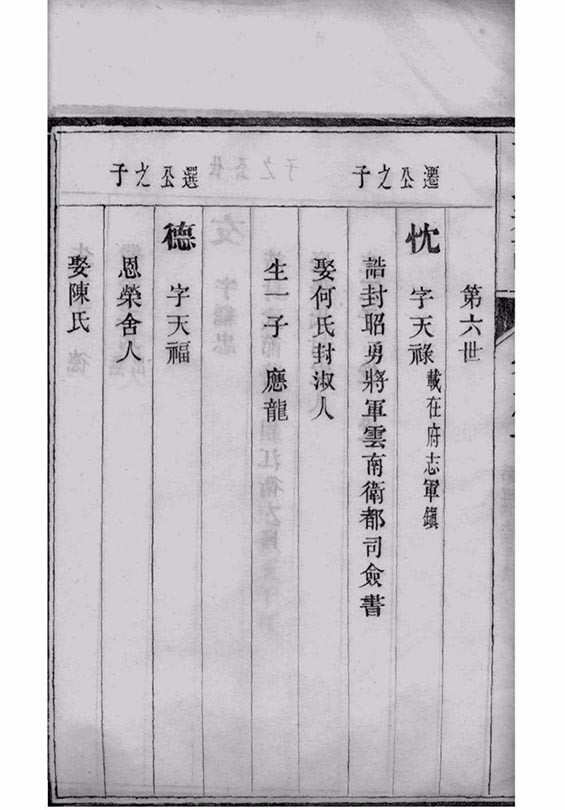 第六世
遷公之子
忱 字天祿 載在府志軍鎮
誥封昭勇將軍雲南衛都司僉書
娶何氏封淑人
生一子 應龍
選公之子
德 字天福
恩榮舍人
娶陳氏